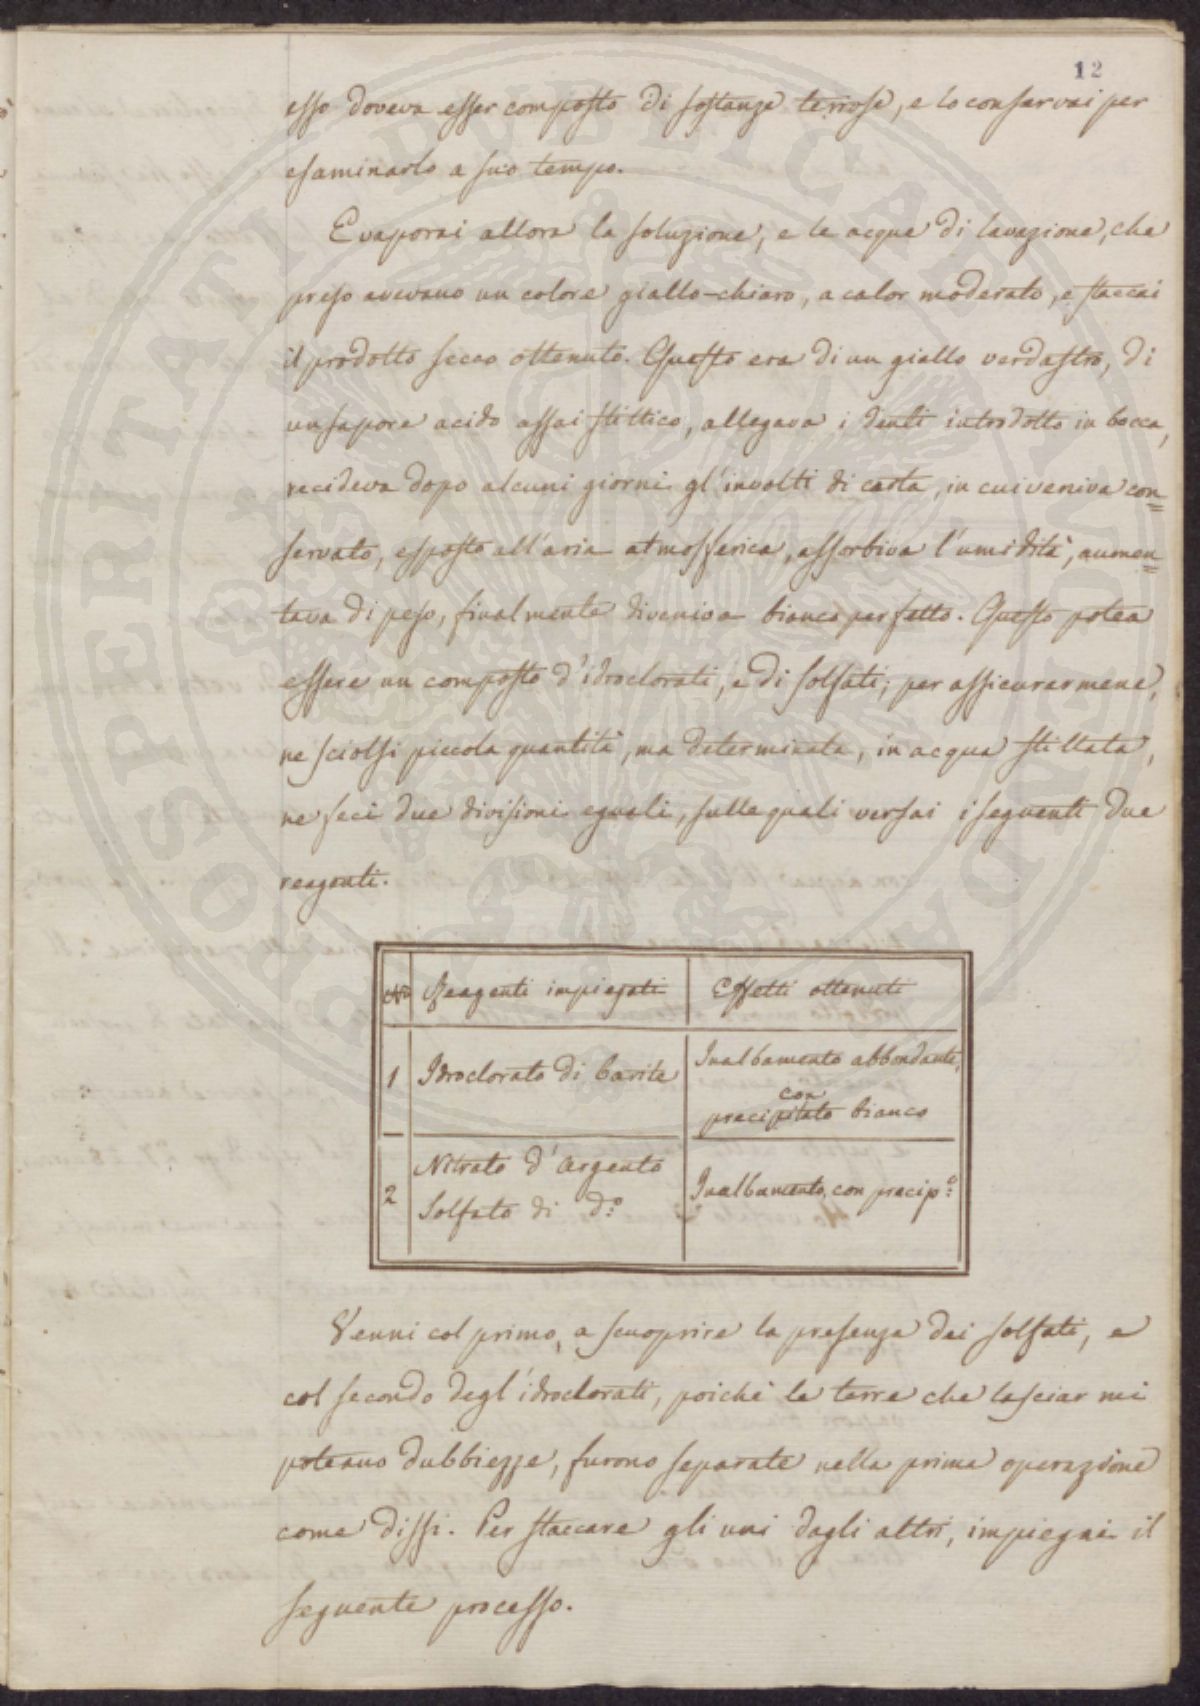 12
esso doveva esser composto di sostanze terrose, e lo conservai per
esaminarlo a suo tempo.
Evaporai allora la soluzione, e le acque di lavazione, che
preso avevano un colore giallo-chiaro, a calor moderato, e staccai
il prodotto secco ottenuto. Questo era di un giallo verdastro, di
un sapore acido assai stittico, allegava i denti introdotto in bocca,
recideva dopo alcuni giorni gl'involti di carta, in cui veniva con=
servato, esposto all'aria atmosferica, assorbiva l'umidità, aumen=
tava di peso, finalmente diveniva bianco perfetto. Questo potea
essere un composto d'idroclorati, e di solfati; per assicurarmene,
ne sciolsi piccola quantità, ma determinata, in acqua stillata,
ne feci due divisioni eguali, sulle quali versai i seguenti due
reagenti.
No Reagenti impiegati Effetti ottenuti
1 Idroclorato di barite Inalbamento abbondante, con precipitato bianco
2 Nitrato d'argento Solfato di d.o Inalbamento, con precip.o
Venni col primo, a scuoprire la presenza dei solfati, e
col secondo degl'idroclorati, poichè le terre che lasciar mi
poteano dubbiezze, furono separate nella prima operazione
come dissi. Per staccare gli uni dagli altri, impiegai il
seguente processo.
PROSPERITATI PUBLICAE AUGENDAE